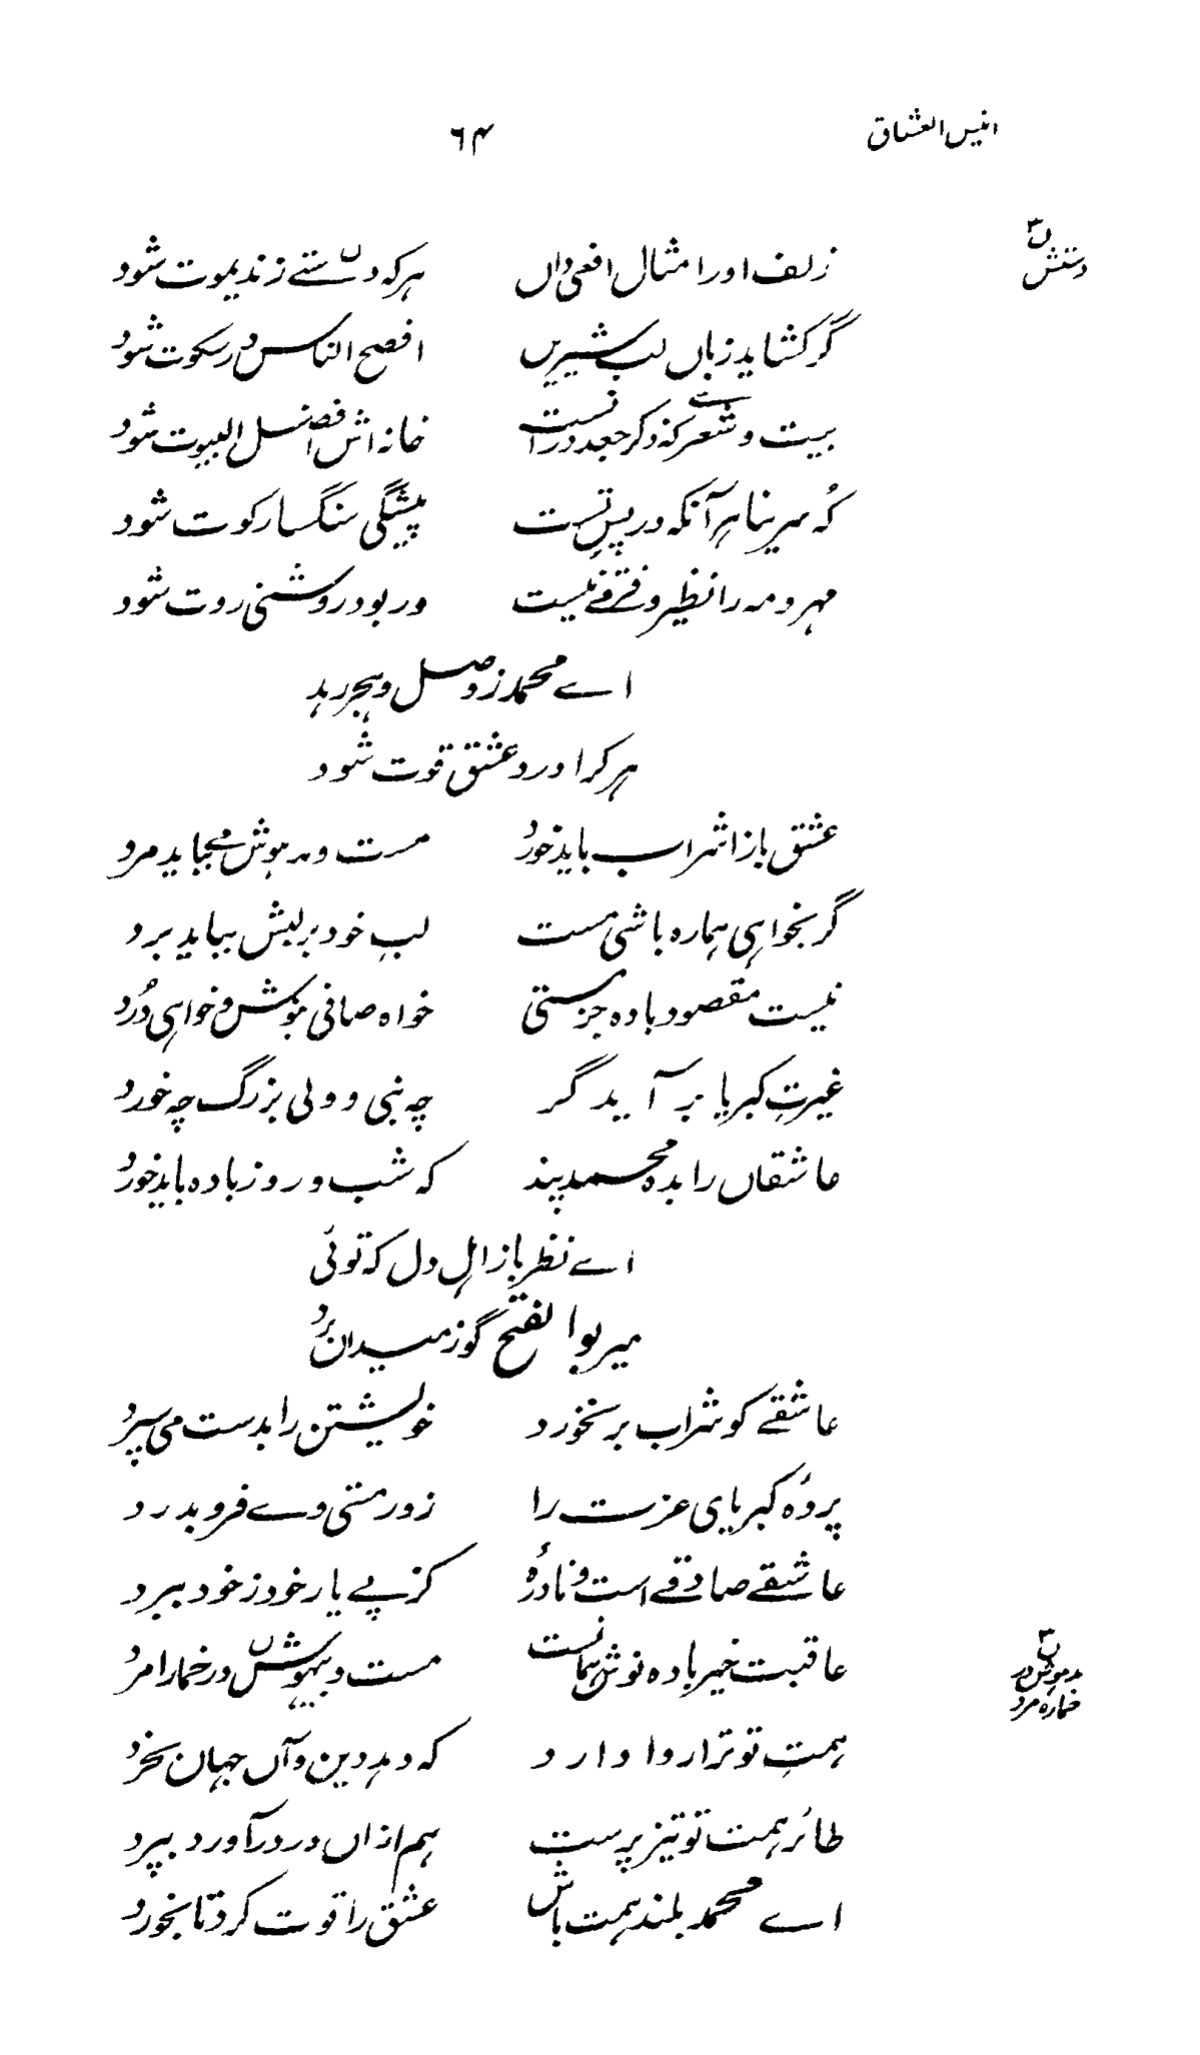 انیس العشاق ۶۴
زلف اورا مثال افعی داں هرکه دستے زند یموت شود
دستش
گر کشاید زباں لب شیریں افصح الناس در سکوت شود
بیت و شعرے که ذکر جعد دراست خانه اش افضل البیوت شود
هر آنکه در پس تست سنگسار کوت شود
مهر و مه را نظیر و فرقے نیست ور بود روشنی روت شود
اے محمد ز وصل و هجر رهد
هر کرا درد عشق قوت شود
عشق باز اشراب باید خورد مست و مدهوش مے بباید مرد
گر بخواهی هماره باشی مست لبِ خود بر لبش بباید برد
نیست مقصود باده جز مستی خواه صافی بنوش و خواهی دُرد
غیرتِ کبریا بر آید گر چه نبی و ولی بزرگ چه خورد
عاشقاں را بده محمد پند که شب و روز باده باید خورد
اے نظر باز اهل دل که توئی
میر بوالفتح گو ز میدان برد
عاشقے کو شراب بر نخورد خویشتن را بدست می سپرد
پردهٔ کبریای عزت را زور مستی وے فرو بدرد
عاشقے صادقے است و نادرهٔ کز پے یار خود ز خود ببرد
عاقبت خیر باده نوش همانست مست و بیهوش در خمارا مرد
مدهوش در
خماره مرد
همتِ تو ترا روا دارد که دهد دین و آں جهان بخرد
طائر همت تو تیز پرست هم ازاں در در آورد بپرد
اے محمد بلند همت باش عشق را قوت کرد تا بخورد